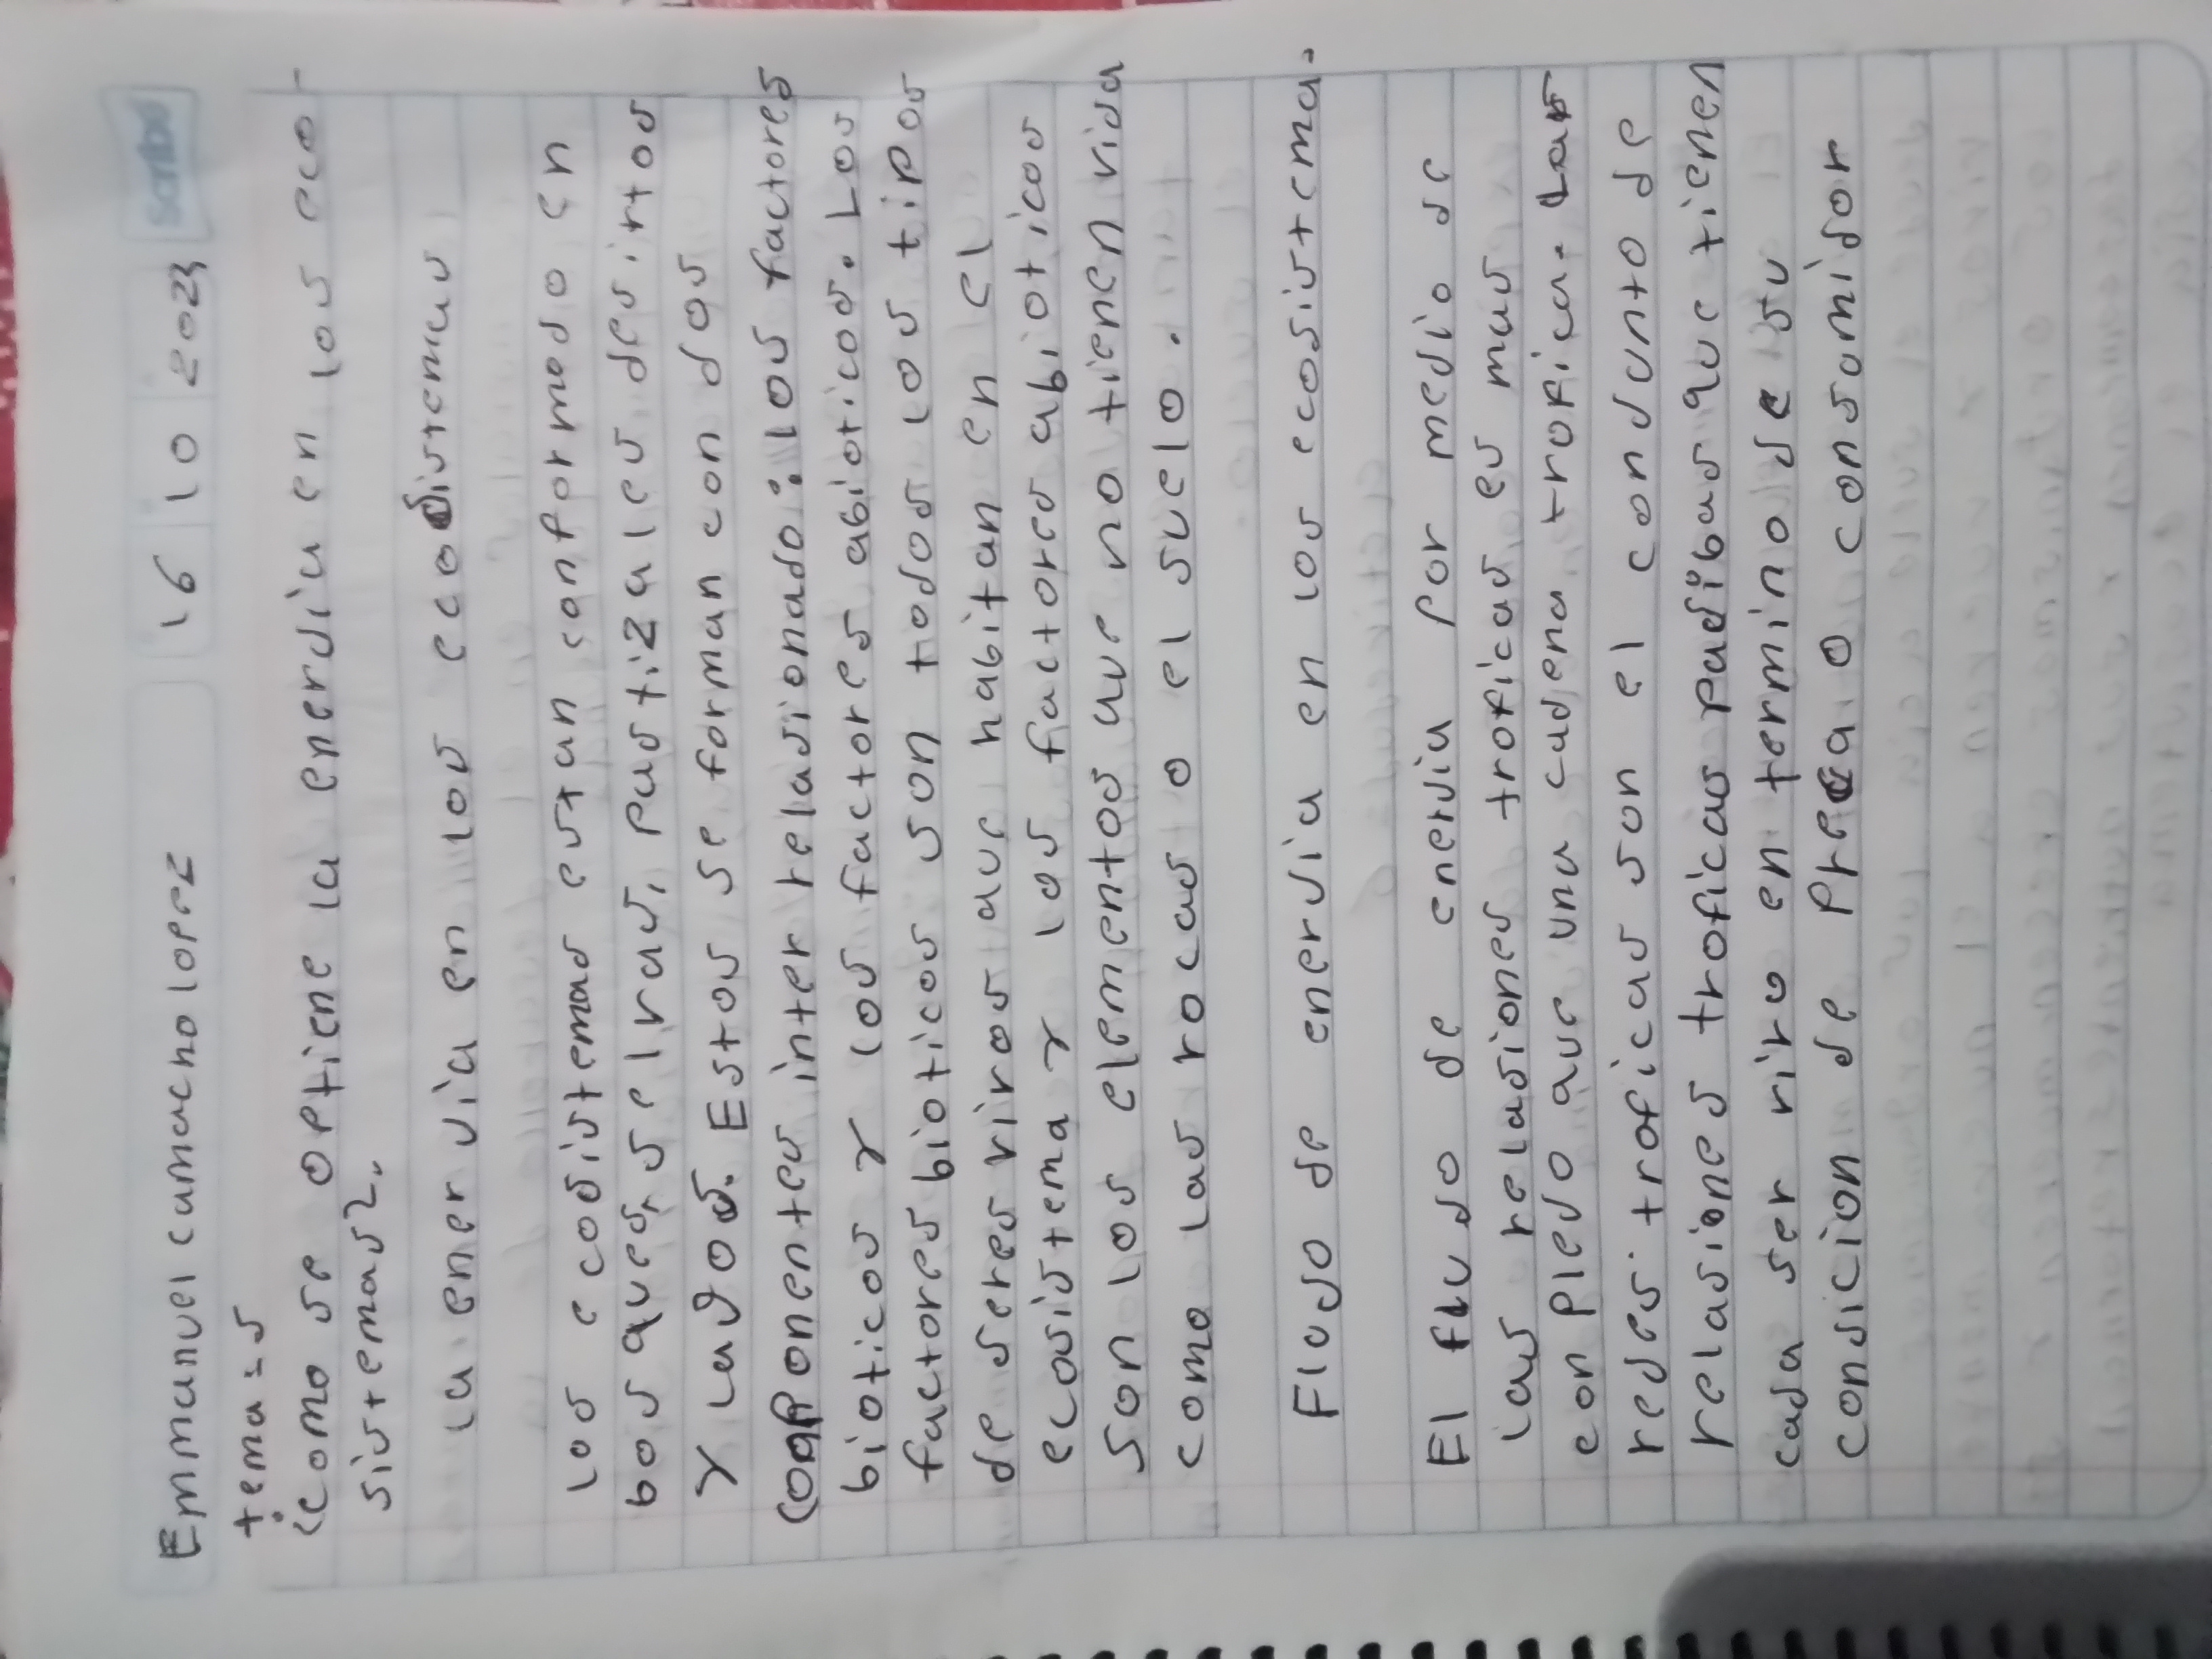 Emmanuel camacho lopez 16 10 2023 scribe
tema = 5
¿como se optiene la enerjia en los eco-
sistemas?.
la enerjia en los ecosistemas
los ecosistemas estan conformado en
bosques, selvas, pastizales desirtos
y lagos. Estos se forman con dos
componentes inter relasionado: los factores
bioticos y los factores abioticos. Los
factores bioticos son todos los tipos
de seres vivos que habitan en el
ecosistema y los factores abioticos
son los elementos que no tienen vida
como las rocas o el suelo.
Flujo de enerjia en los ecosistema.
El flujo de enerjia por medio de
las relasiones troficas es mas
conplejo que una cadena trofica. Las
redes troficas son el conjunto de
relasiones troficas pasibas que tienen
cada ser vivo en termino de su
consicion de presa o consumidor